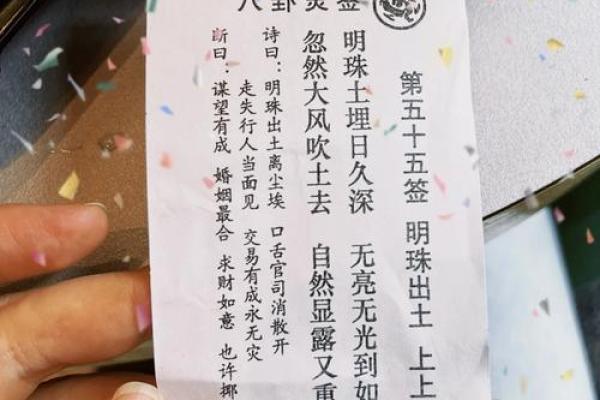 八卦灵签
第五十五签 明珠出土 上上
明珠土埋日久深 无亮无光到如
忽然大风吹土去 自然显露又重
诗曰：明珠出土离尘埃 口舌官司消散开
走失行人当面见 交易有成永无灾
断曰：谋望有成 婚姻最合 求财如意 也许挪